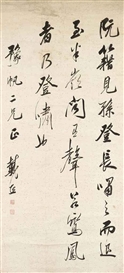 阮籍見孫登長嘯之而退
至半嶺聞有聲若鸞鳳
者乃登嘯也
穆帆二兄正 戴熙